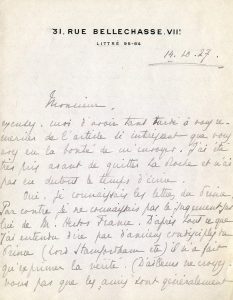 31, RUE BELLECHASSE. VIIE
LITTRÉ 96-64
14.10.27.
Monsieur,
excusez-moi d'avoir tant tardé à vous re-
mercier de l'article si intéressant que vous
avez eu la bonté de m'envoyer. J'ai été
très pris avant de quitter la et n'ai
pas eu du tout le temps d'écrire.
Oui, je connaissais les lettres du Prince
Par contre je ne connaissais pas le jugement
de M. France. D'après tout ce que
j'ai entendu dire par d'anciens
Prince (Lord Stamfordham etc.) il n'a fait
qu'exprimer la vérité. (D'ailleurs ne croyez
vous pas que les amis sont généralement